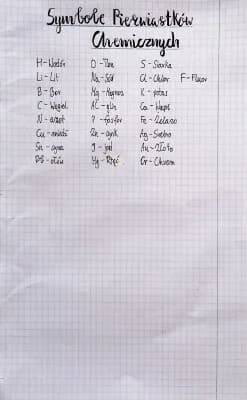 Symbole Pierwiastków
Chemicznych
H - Wodór O - Tlen S - Siarka
Li - Lit Na - Sód Cl - Chlor F - Fluor
B - Bor Mg - Magnez K - potas
C - Węgiel Al - glin Ca - Wapń
N - azot P - fosfor Fe - Żelazo
Cu - miedź Zn - cynk Ag - Srebro
Sn - cyna J - jod Au - Złoto
Pb - ołów Hg - Rtęć Cr - Chrom